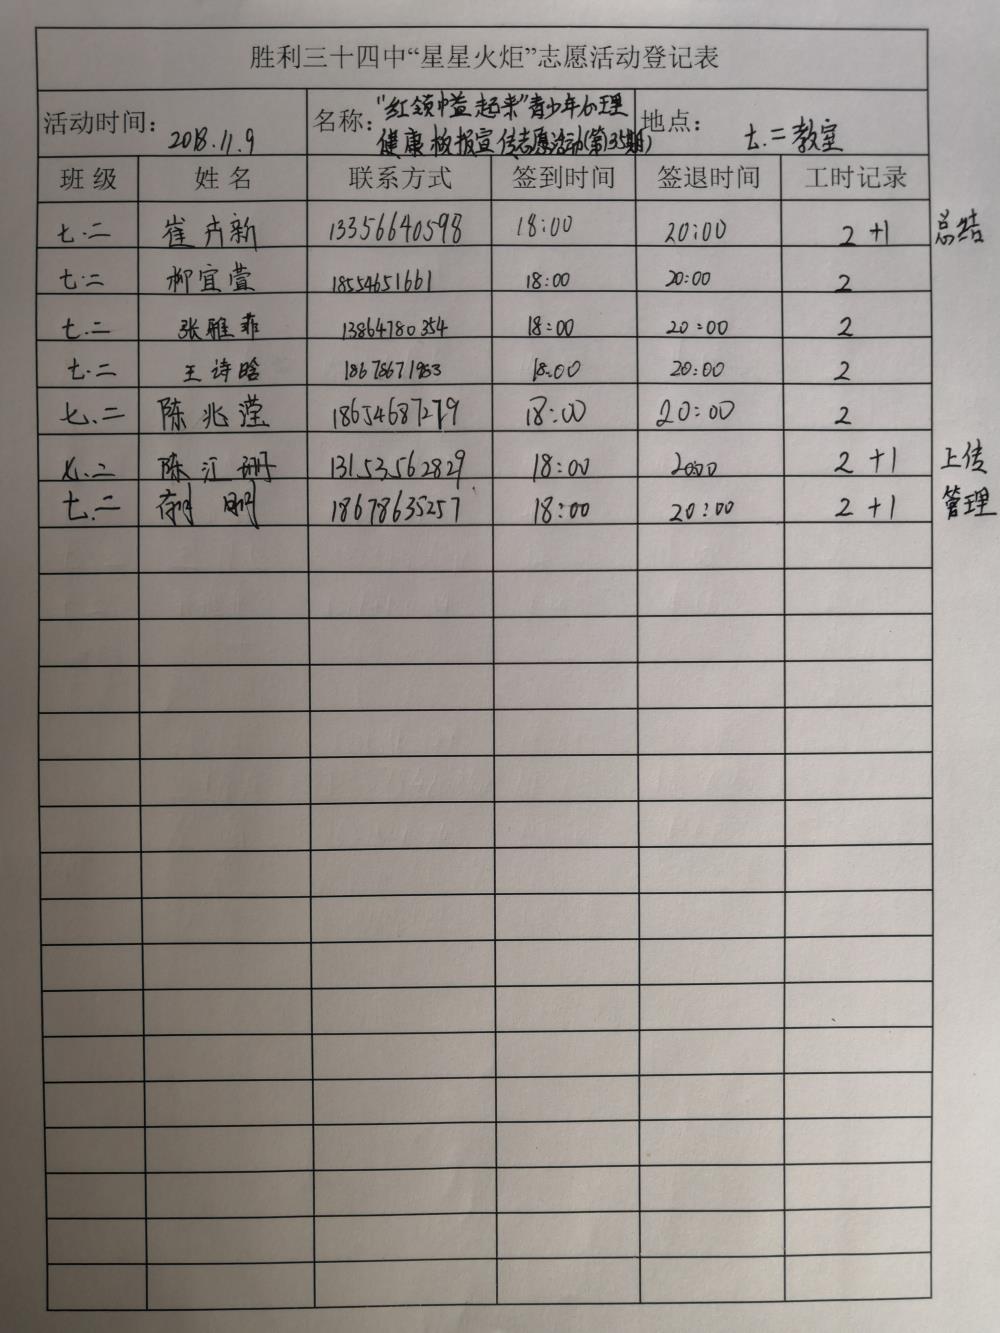 胜利三十四中“星星火炬”志愿活动登记表
活动时间： 2018.11.9 名称：“红领巾益起来”青少年心理健康板报宣传志愿活动(第135期) 地点： 七.二教室
班级 姓名 联系方式 签到时间 签退时间 工时记录
七.二 崔卉新 13356640598 18:00 20:00 2+1 总结
七.二 柳宜萱 18554651661 18:00 20:00 2
七.二 张雅菲 13864780354 18:00 20:00 2
七.二 王诗晗 18678671983 18:00 20:00 2
七.二 陈兆滢 18654687279 18:00 20:00 2
七.二 陈江珊 13153562829 18:00 2000 2+1 上传
七.二 18678635257 18:00 20:00 2+1 管理